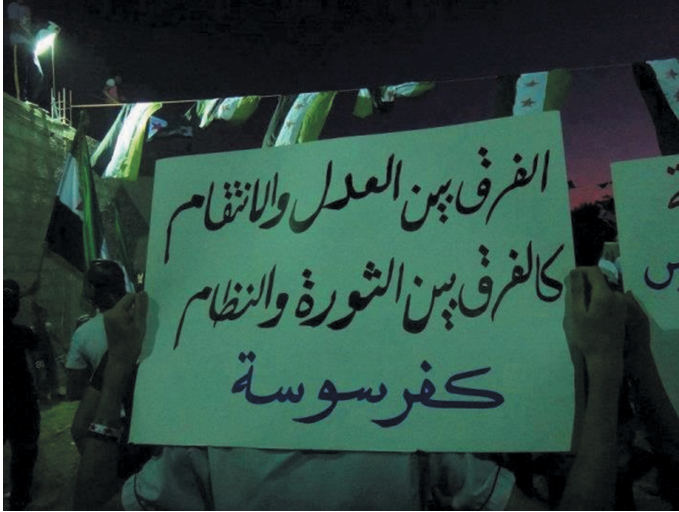 الفرق بين العدل والانتقام
كالفرق بين الثورة والنظام
كفرسوسة